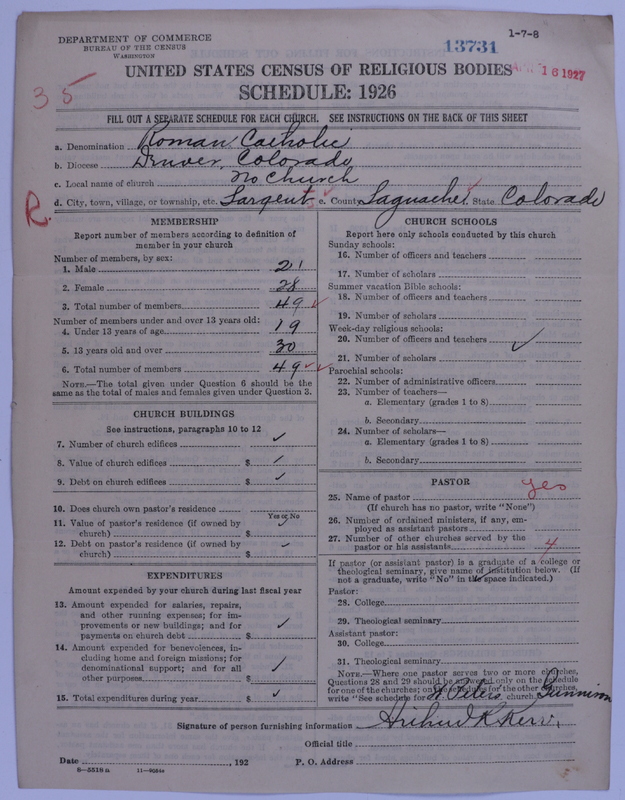 DEPARTMENT OF COMMERCE
BUREAU OF THE CENSUS
WASHINGTON
13731
1-7-8
16 1927
35
UNITED STATES CENSUS OF RELIGIOUS BODIES
SCHEDULE: 1926
FILL OUT A SEPARATE SCHEDULE FOR EACH CHURCH. SEE INSTRUCTIONS ON THE BACK OF THIS SHEET
a. Denomination Roman Catholic
b. Diocese Denver, Colorado
c. Local name of church no Church
d. City, town, village, or township, etc. Sargent e. County Saguache State Colorado
R.
MEMBERSHIP
Report number of members according to definition of
member in your church
Number of members, by sex:
1. Male 21
2. Female 28
3. Total number of members 49 ✓
Number of members under and over 13 years old:
4. Under 13 years of age 19
5. 13 years old and over 30
6. Total number of members 49 ✓ ✓
NOTE.—The total given under Question 6 should be the
same as the total of males and females given under Question 3.
CHURCH BUILDINGS
See instructions, paragraphs 10 to 12
7. Number of church edifices ✓
8. Value of church edifices $ ✓
9. Debt on church edifices $ ✓
10. Does church own pastor's residence
Yes or No
11. Value of pastor's residence (if owned by
church) $ ✓
12. Debt on pastor's residence (if owned by
church) $ ✓
EXPENDITURES
Amount expended by your church during last fiscal year
13. Amount expended for salaries, repairs,
and other running expenses; for im-
provements or new buildings; and for
payments on church debt $ ✓
14. Amount expended for benevolences, in-
cluding home and foreign missions; for
denominational support; and for all
other purposes $ ✓
15. Total expenditures during year $ ✓
CHURCH SCHOOLS
Report here only schools conducted by this church
Sunday schools:
16. Number of officers and teachers
17. Number of scholars
Summer vacation Bible schools:
18. Number of officers and teachers
19. Number of scholars
Week-day religious schools:
20. Number of officers and teachers ✓
21. Number of scholars
Parochial schools:
22. Number of administrative officers
23. Number of teachers—
a. Elementary (grades 1 to 8)
b. Secondary
24. Number of scholars—
a. Elementary (grades 1 to 8)
b. Secondary
PASTOR
25. Name of pastor yes
(If church has no pastor, write "None")
26. Number of ordained ministers, if any, em-
ployed as assistant pastors
27. Number of other churches served by the
pastor or his assistants 4
If pastor (or assistant pastor) is a graduate of a college or
theological seminary, give name of institution below. (If
not a graduate, write "No" in the space indicated.)
Pastor:
28. College
29. Theological seminary
Assistant pastor:
30. College
31. Theological seminary
NOTE.—Where one pastor serves two or more churches,
Questions 28 and 29 should be answered only on the schedule
for one of the churches; on the schedules for the other churches,
write "See schedule for St. Peters church, Gunnison
Signature of person furnishing information
Official title
Date , 192 P. O. Address
6—5518a 11—9054a